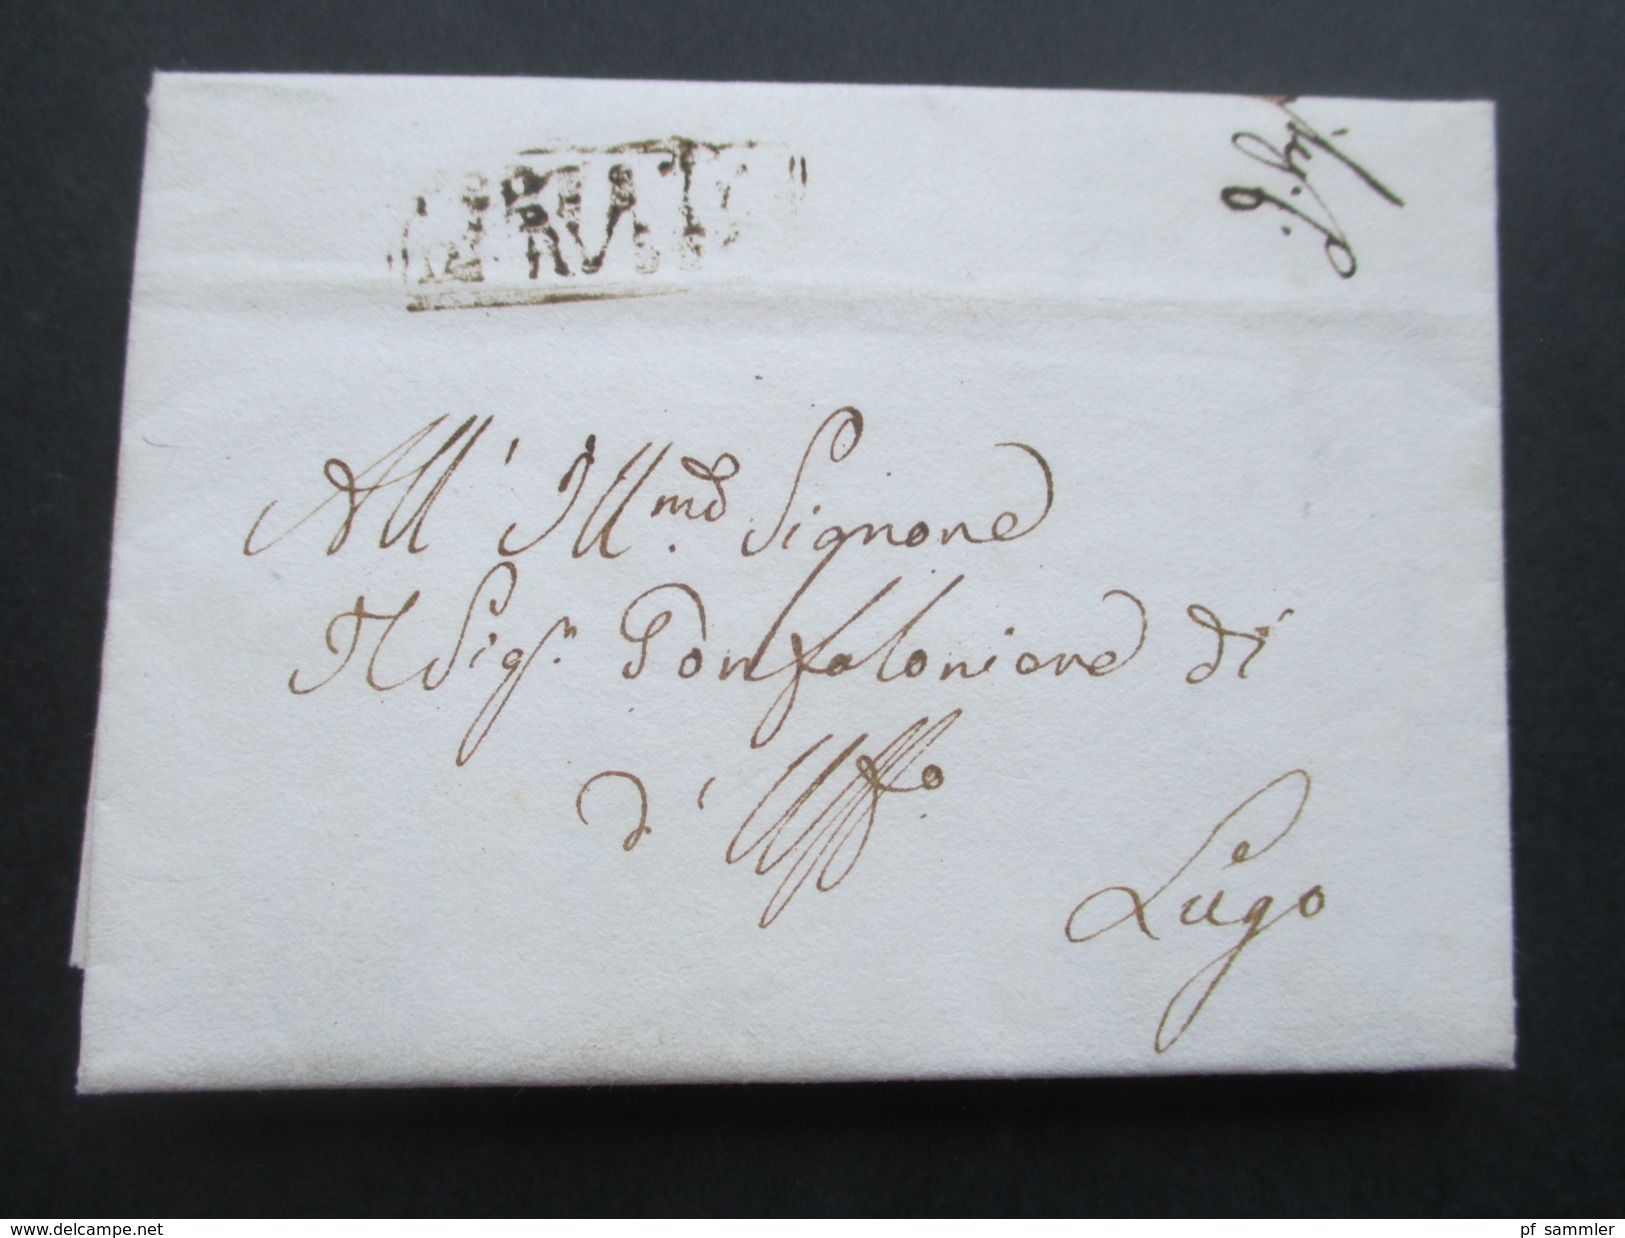 All' Ill.mo Signore
Il Sigr. Gonfaloniere di
d' Uffo.
Lugo
www.delcampe.net
pf_sammler